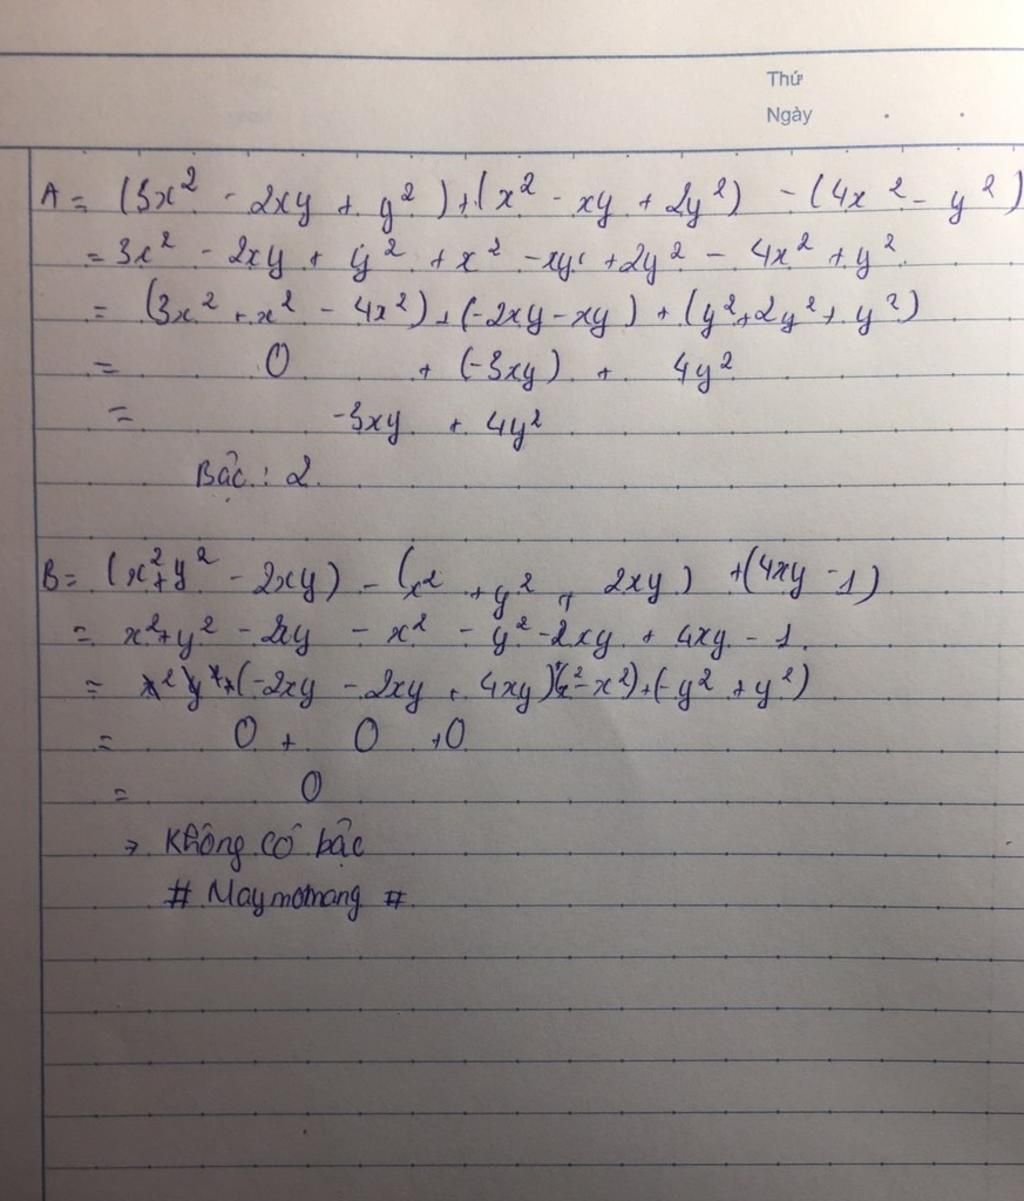 Thứ
Ngày
A = (3x² - 2xy + y²) + (x² - xy + 2y²) - (4x² - y²)
= 3x² - 2xy + y² + x² - xy + 2y² - 4x² + y²
= (3x² + x² - 4x²) + (-2xy - xy) + (y² + 2y² + y²)
= 0 + (-3xy) + 4y²
= -3xy + 4y²
Bậc : 2.
B = (x² + y² - 2xy) - (x² + y² + 2xy) + (4xy - 1)
= x² + y² - 2xy - x² - y² - 2xy + 4xy - 1.
= (-2xy - 2xy + 4xy) + (x² - x²) + (-y² + y²)
= 0 + 0 + 0
= 0
→ Không có bậc
# Maymomang #